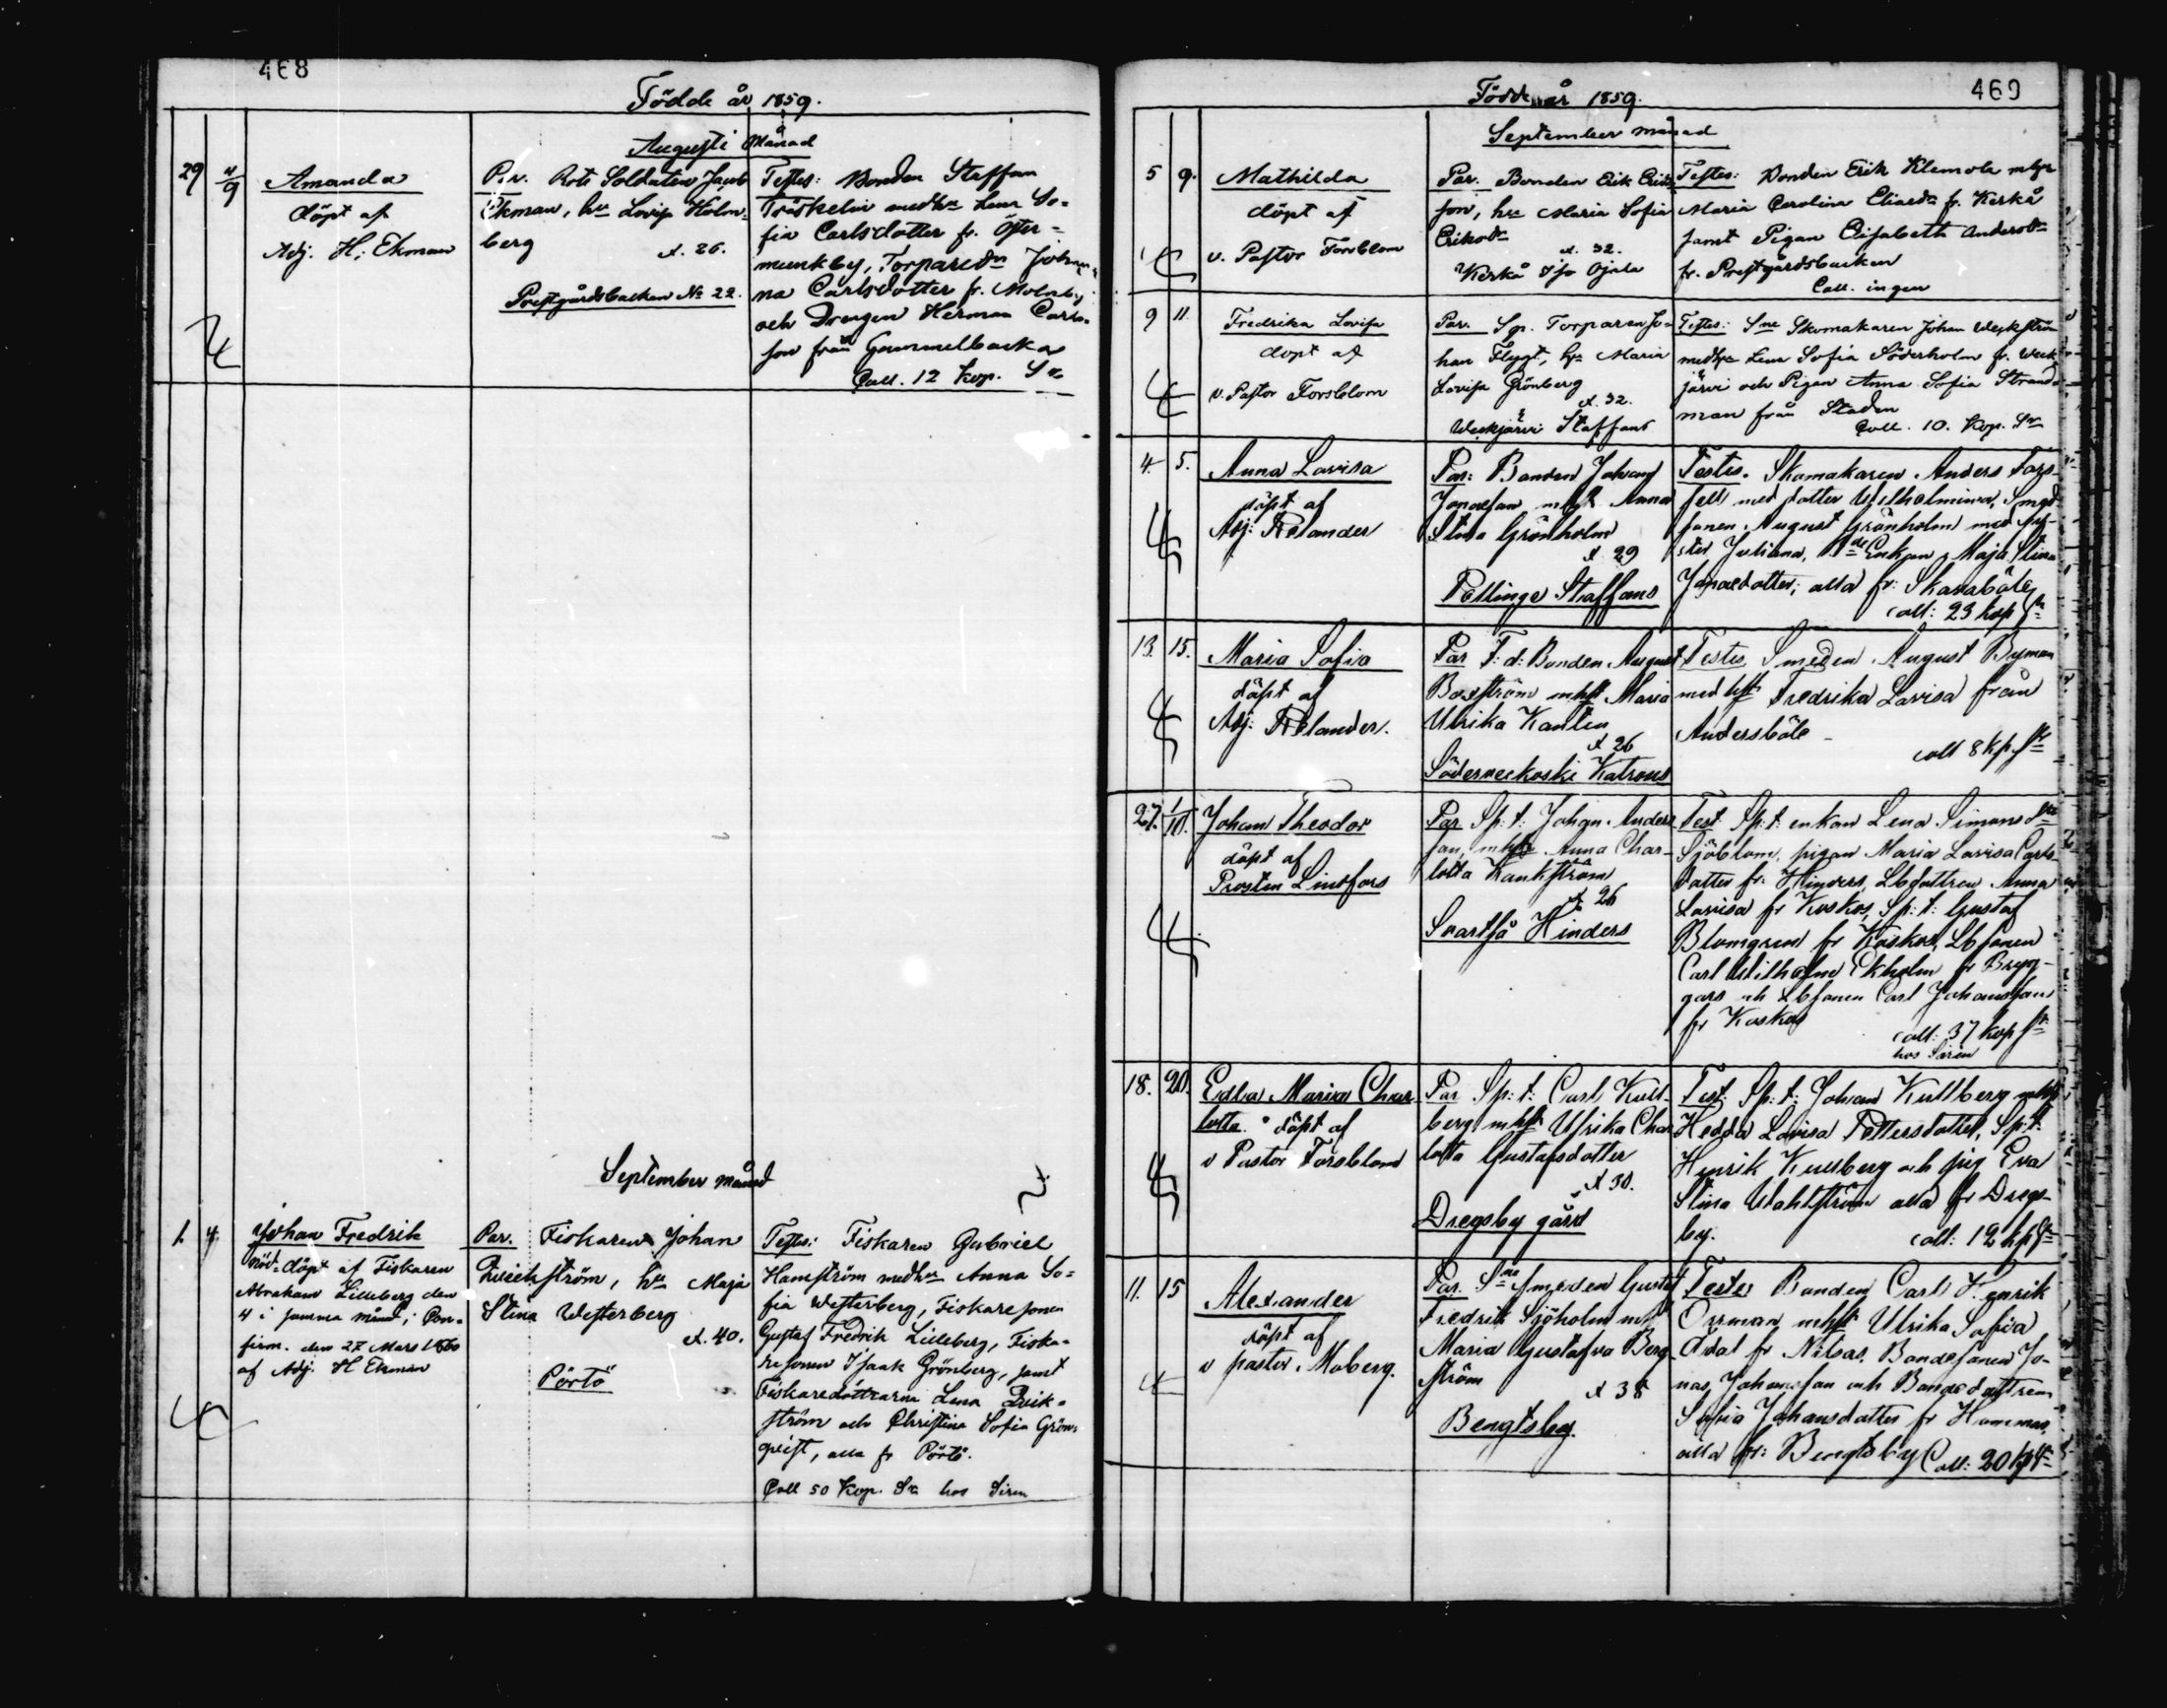 468
Födde år 1859.
Augusti Månad
29 4/9 Amanda
döpt af
Adj. H. Ekman
Par. Rote Soldaten Jacob
Ekman, hu Lovisa Holm-
berg
æt. 26.
Prestgårdsbacken No 22.
Testes: Bonden Staffan
Träskelin med hu Lena So-
fia Carlsdotter fr. Öster-
munkby, Torparedn Johan-
na Carlsdotter fr. Molnby
och Drengen Herman Carls-
son från Gammelbacka
Coll. 12 Kop. Sr
September månad
1. 4. Johan Fredrik
nöd-döpt af Fiskaren
Abraham Lilleberg den
4 i samma månad; Con-
firm. den 27 Mars 1860
af Adj. H Ekman
Par. Fiskaren Johan
Qvickström, hu Maja
Stina Westerberg
æt. 40.
Pörtö
Testes: Fiskaren Gabriel
Hamström med hu Anna So-
fia Westerberg, Fiskaresonen
Gustaf Fredrik Lilleberg, Fiska-
resonen Isaak Grönberg, samt
Fiskaredöttrarna Lena Qvik-
ström och Christina Sofia Grön-
qvist, alla fr Pörtö.
Coll 50 Kop. Sr hos Siren
469
Födde år 1859.
September månad
5 9. Mathilda
döpt af
v. Pastor Forsblom
Par. Bonden Erik Eriks-
son, hu Maria Sofia
Eriksdr
æt. 32.
Kerkå Iso Ojala
Testes: Bonden Erik Klemola mhu
Maria Carolina Eliasdr fr. Kerkå
samt Pigan Elisabeth Andersdr
fr. Prestgårdsbacken
Coll. ingen
9 11. Fredrika Lovisa
döpt af
v. Pastor Forsblom
Par. Sp. Torparen Jo-
han Flygt, hu Maria
Lovisa Grönberg
æt. 32.
Weckjärvi Staffans
Testes: Sne Skomakaren Johan Weckström
medhu Lena Sofia Söderholm fr. Weck-
järvi och Pigan Anna Sofia Strand-
man från Staden
Coll. 10. Kop. Sr
4. 5. Anna Lovisa
döpt af
Adj: Relander
Par: Bonden Johan
Jonasson mhu Anna
Stina Grönholm
æt 29
Pellinge Staffans
Testes. Skomakaren Anders Fors-
felt med dotter Wilhelmina,
sonen August Grönholm med sy-
ster Juliana, Enkan Maja Stina
Jonasdotter, alla fr: Skavaböle
coll: 23 kop Sr
13. 15. Maria Sofia
döpt af
Adj: Relander.
Par F: d: Bonden August
Boxström mhu Maria
Ulrika Kantin
æt 26
Söderveckoski Katrens
Testes Smeden August Byman
med hu Fredrika Lovisa från
Andersböle
coll 8 kp Sr
27. 1/10. Johan Theodor
döpt af
Prosten Lindfors
Par Sp: t: Johan Anders-
son, mhu Anna Char-
lotta Kankström
æt 26
Svartså Hinders
Test Sp: t: enkan Lena Simonsdr
Sjöblom, pigan Maria Lovisa Carls-
dotter fr. Hinders, Lbdottren Anna
Lovisa fr Koskas, Sp: t: Gustaf
Blomgren fr Koskas, Lbsonen
Carl Wilhelm Ekholm fr Brygg-
gars och Lbsonen Carl Johansson
fr Koskas
coll: 37 kop Sr
hos Siren
18. 20. Edla Maria Char-
lotta. döpt af
v Pastor Forsblom
Par Sp: t: Carl Kull-
berg mhu Ulrika Char-
lotta Gustafsdotter
æt 30.
Dregsby gård
Test. Sp: t: Johan Kullberg mhu
Hedda Lovisa Pettersdotter, Sp: t:
Henrik Kullberg och pig Eva
Stina Wahlström alla fr Dregs-
by.
coll: 12 kp Sr
11. 15 Alexander
döpt af
v pastor Moberg.
Par. Sne Smeden Gustaf
Fredrik Sjöholm mhu
Maria Gustafva Berg-
ström
æt 38
Bengtsby.
Testes Bonden Carl Henrik
Örman mhu Ulrika Sofia
Ådal fr Nilsas, Bondesonen Jo-
nas Johansson och Bondedottren
Sofia Johansdotter fr Hommas,
alla fr: Bengtsby Coll: 20 kp Sr